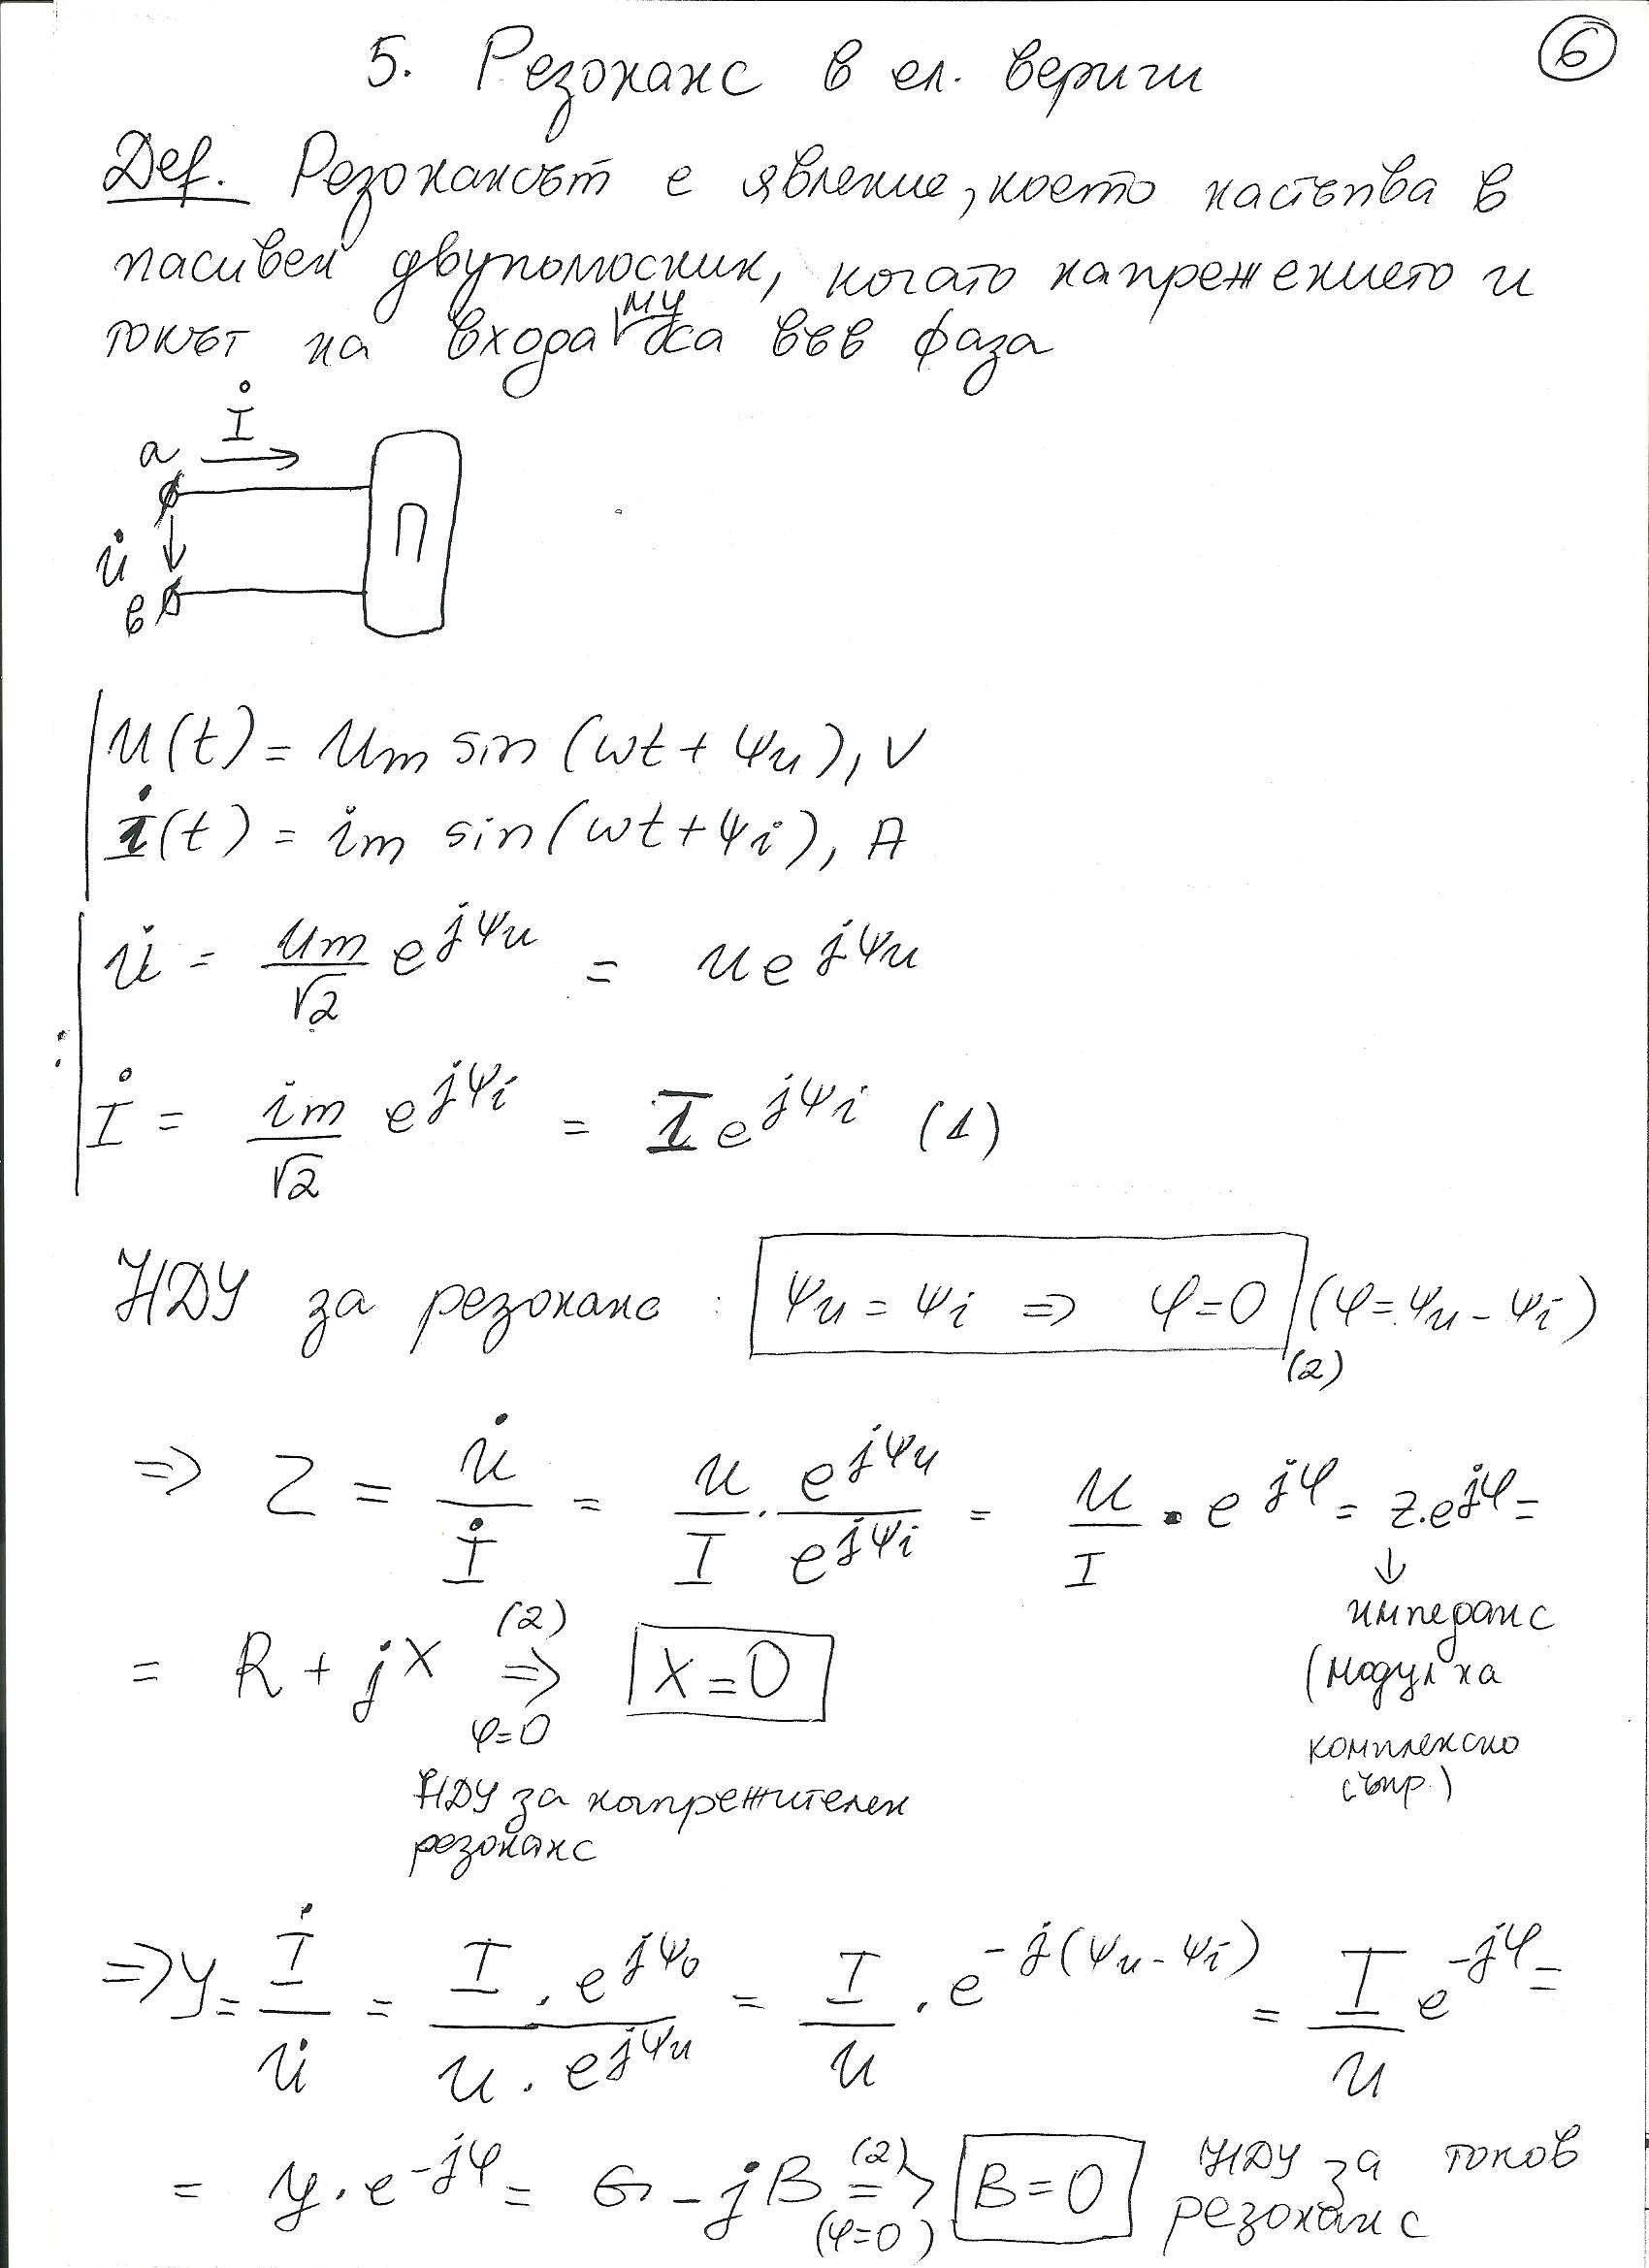 6
5. Резонанс в ел. вериги
Def. Резонансът е явление, което настъпва в
пасивен двуполюсник, когато напрежението и
токът на входа му са във фаза
İ
a
П
u̇
в
u(t) = um sin (ωt + Ψu), V
i(t) = im sin (ωt + Ψi), A
u̇ = um/√2 e^jΨu = u e^jΨu
İ = im/√2 e^jΨi = I e^jΨi (1)
НДУ за резонанс : Ψu = Ψi ⇒ φ = 0 (φ = Ψu - Ψi)
(2)
⇒ Z = u̇/İ = u/I . e^jΨu/e^jΨi = u/I . e^jφ = z.e^jφ =
↓
импеданс
(модул на
комплексно
съпр.)
= R + jX (2) ⇒ φ=0 X = 0
НДУ за напрежителен
резонанс
⇒ y = İ/u̇ = I . e^jΨ₀/u . e^jΨu = I/u . e^-j(Ψu - Ψi) = I/u e^-jφ =
= y . e^-jφ = G - jB (2) ⇒ (φ=0) B = 0 НДУ за токов
резонанс